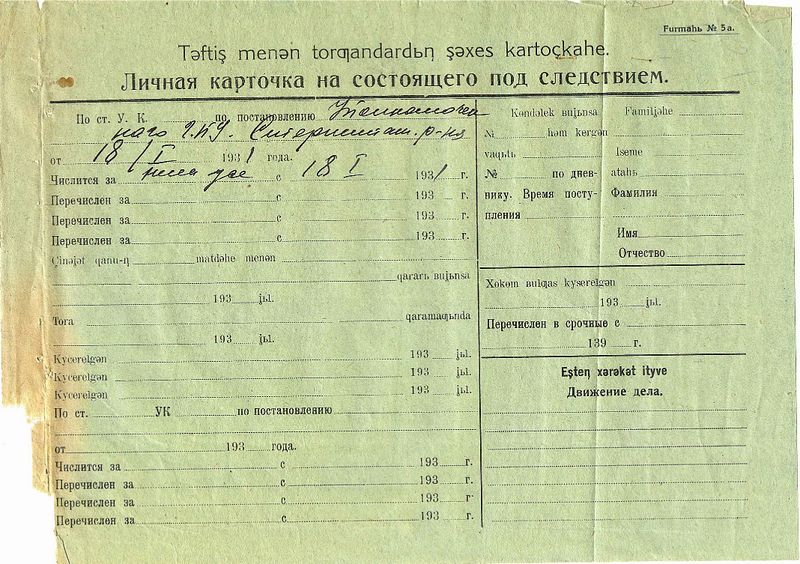 Furmahь № 5a.
Təftiş menən torƣandardьꞑ şəxes kartoçkahe.
Личная карточка на состоящего под следствием.
По ст. У. К. по постановлению
р-на
от 18/I 1931 года.
Числится за с 18 I 1931 г.
Перечислен за с 193 г.
Перечислен за с 193 г.
Перечислен за с 193 г.
Çinəjət qanu-ꞑ matdəhe menən
qararь bujьnsa
193 jьl.
Tora qaramaƣьnda
193 jьl.
Kycerelgən 193 jьl.
Kycerelgən 193 jьl.
Kycerelgən 193 jьl.
По ст. УК по постановлению
от 193 года.
Числится за с 193 г.
Перечислен за с 193 г.
Перечислен за с 193 г.
Перечислен за с 193 г.
Kɵndəlek bujьnsa
№ həm kergən
vaqьtь
№ по днев-
нику. Время посту-
пления
Familijəhe
Iseme
atahь
Фамилия
Имя
Отчество
Xɵkɵm bulƣas kyserelgən
193 jьl.
Перечислен в срочные с
139 г.
Eşteꞑ xərəkət ityve
Движение дела.